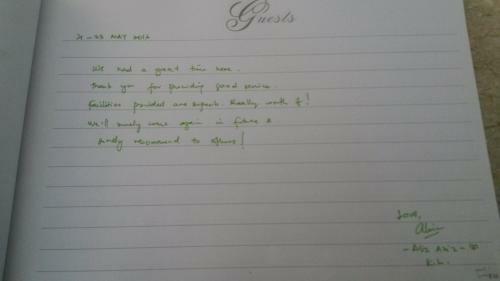 Guests
21 - 23 MAY 2012
We had a great time here.
Thank you for providing good service.
Facilities provided are superb. Really worth it!
We'll surely come again in future &
surely recommend to others!
Love,
K.L.